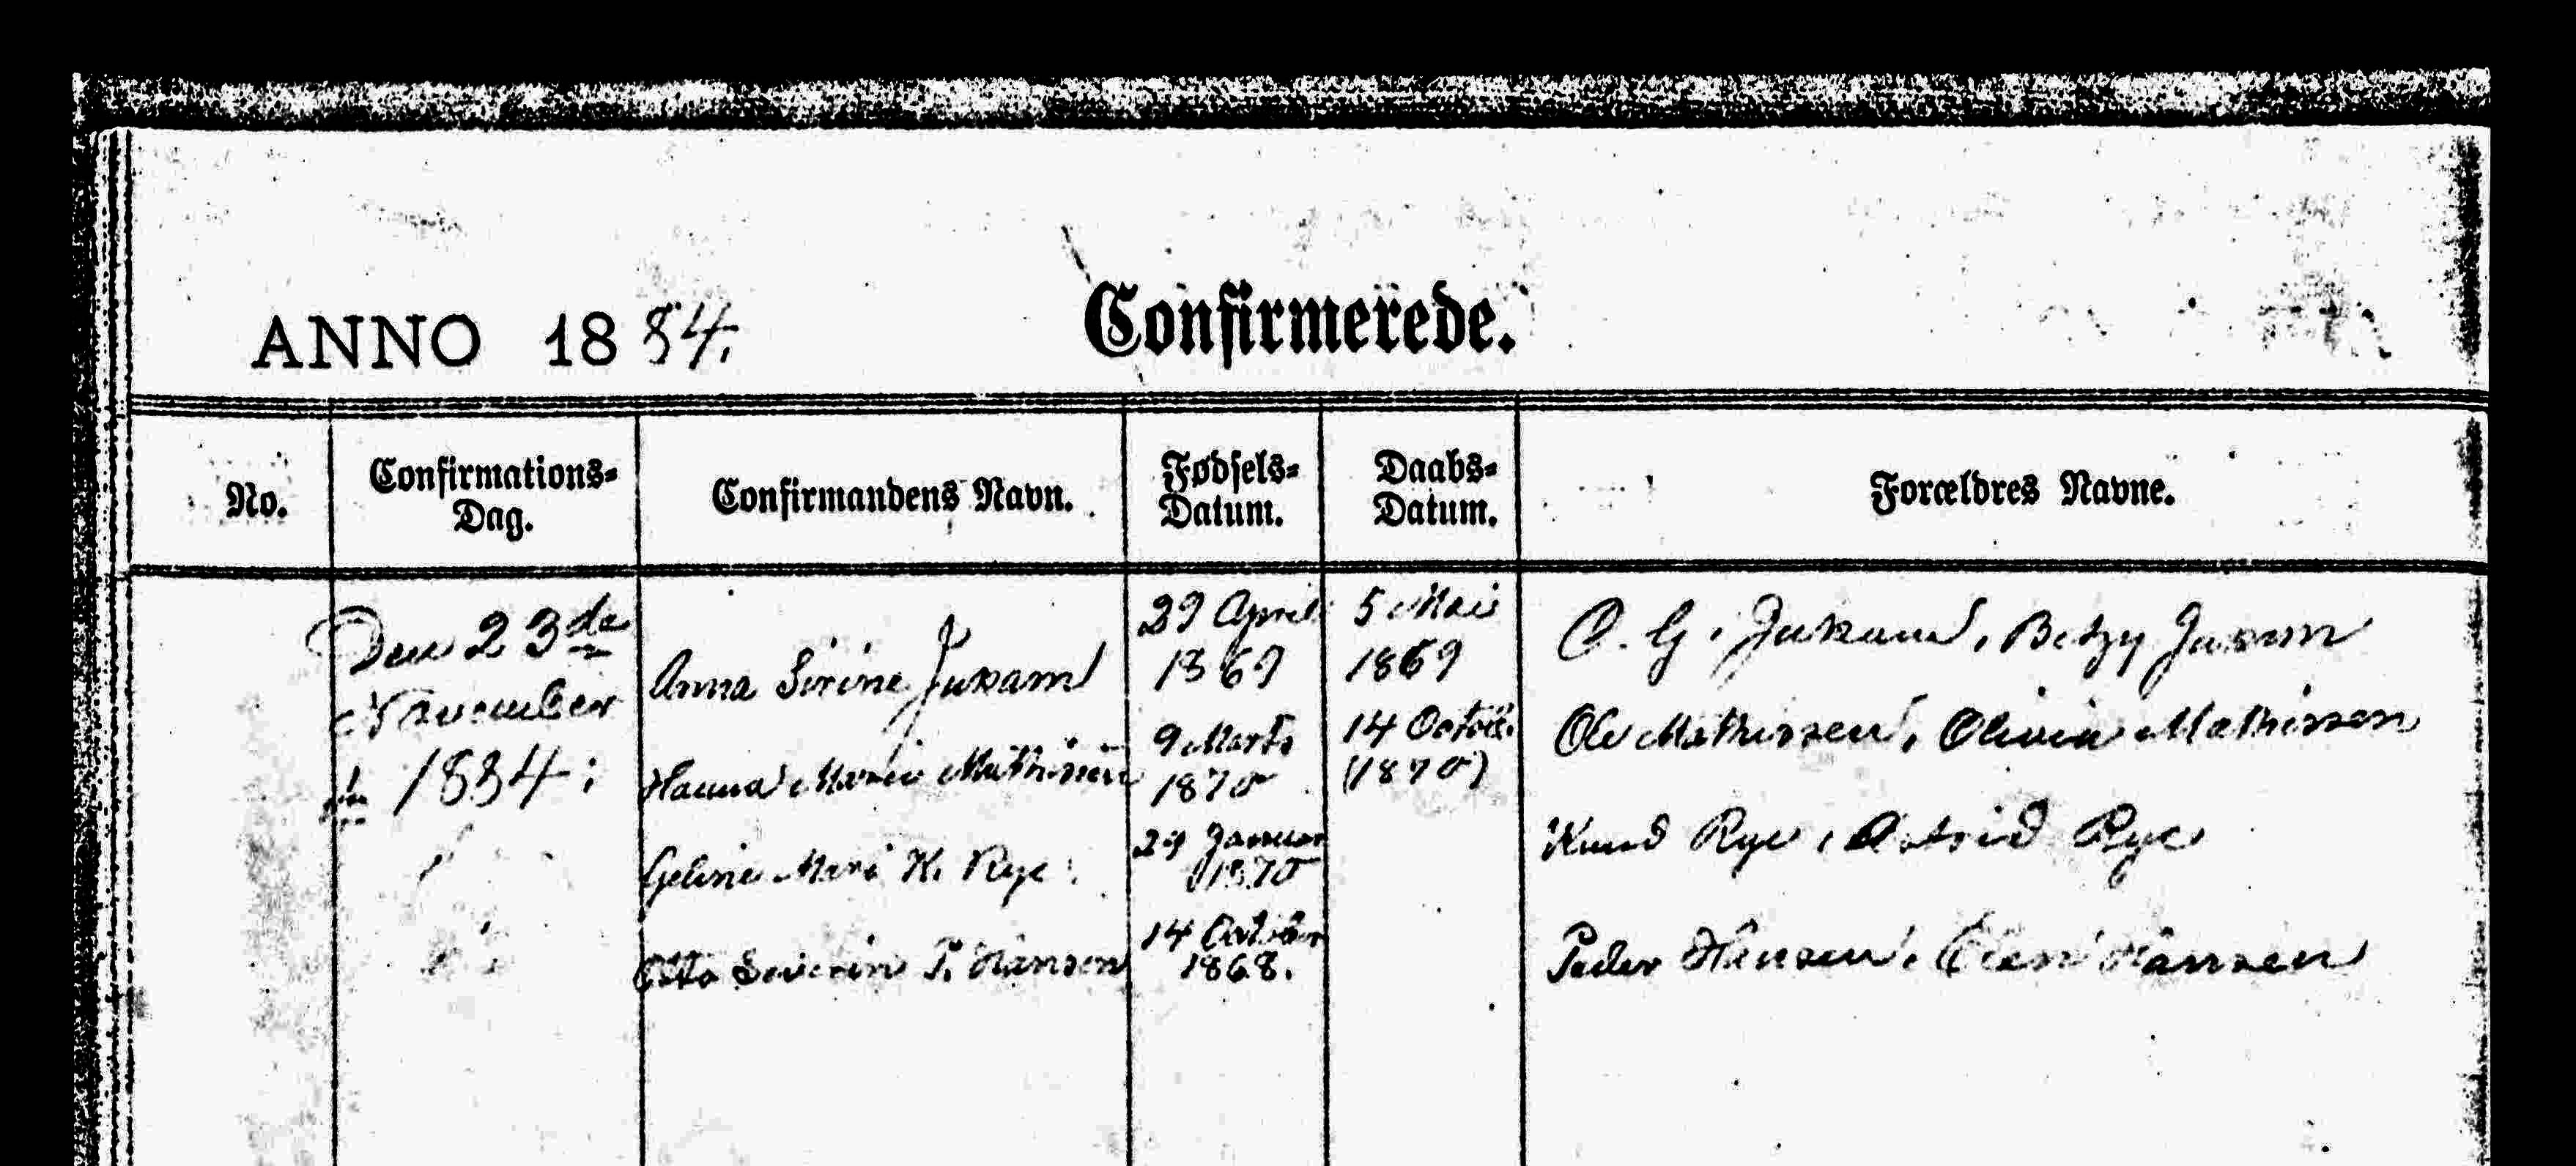 ANNO 1884.
Confirmerede.
No.
Confirmations-
Dag.
Confirmandens Navn.
Fødsels-
Datum.
Daabs-
Datum.
Forældres Navne.
Den 23de
November
1884
Anna Sirine
29 April
1869
5 Mai
1869
C. G.
Hanna Marie Mathissen
9 Marts
1870
14 Octob.
(1870)
Ole Mathissen, Olivia Mathissen
Geline Mari K. Rye
29 Januar
1870
Knud Rye, Astrid Rye
Otto Severin P. Hansen
14 October
1868.
Peder Hansen, Hansen